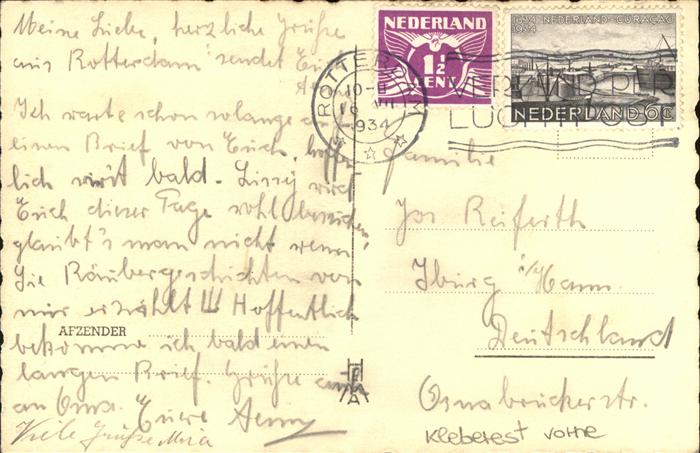 Meine Liebe, herzliche Grüße
aus Rotterdam sendet Euch
Ich warte schon solange auf
einen Brief von Euch, hoffent
lich wird bald. Lissy wird
Euch dieser Tage wohl besuchen,
glaubt's man nicht wenn
Sie Räubergeschichten von
mir erzählt !!! Hoffentlich
bekomme ich bald einen
langen Brief. Grüße auch
an Oma. Euere
Viele Grüße Mia
AFZENDER
NEDERLAND
1½
CENT
1634 NEDERLAND-CURAÇAO
1934
NEDERLAND 6C
ROTTERDAM
1934
VERZENDT PER
LUCHTPOST
Familie
Jos Reiferth
Iburg i/Hann.
Deutschland
Osnabrückerstr.
Kleberest vorne